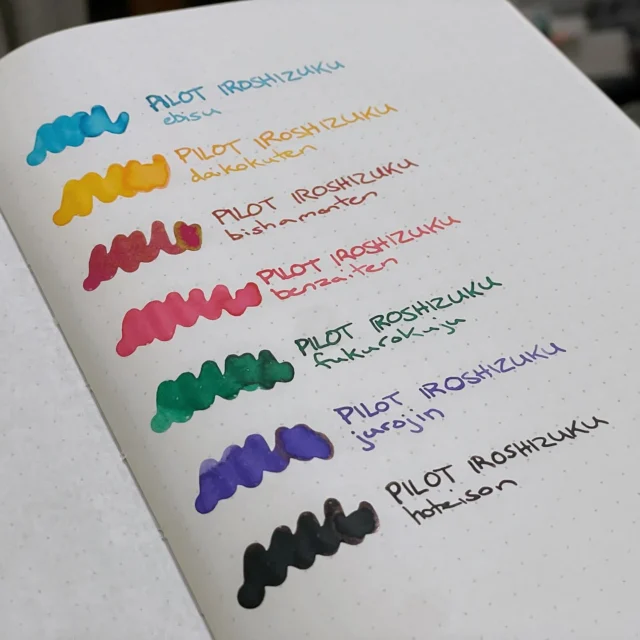 PILOT IROSHIZUKU
ebisu
PILOT IROSHIZUKU
daikokuten
PILOT IROSHIZUKU
bishamonten
PILOT IROSHIZUKU
benzaiten
PILOT IROSHIZUKU
fukurokuju
PILOT IROSHIZUKU
jurojin
PILOT IROSHIZUKU
hoteison